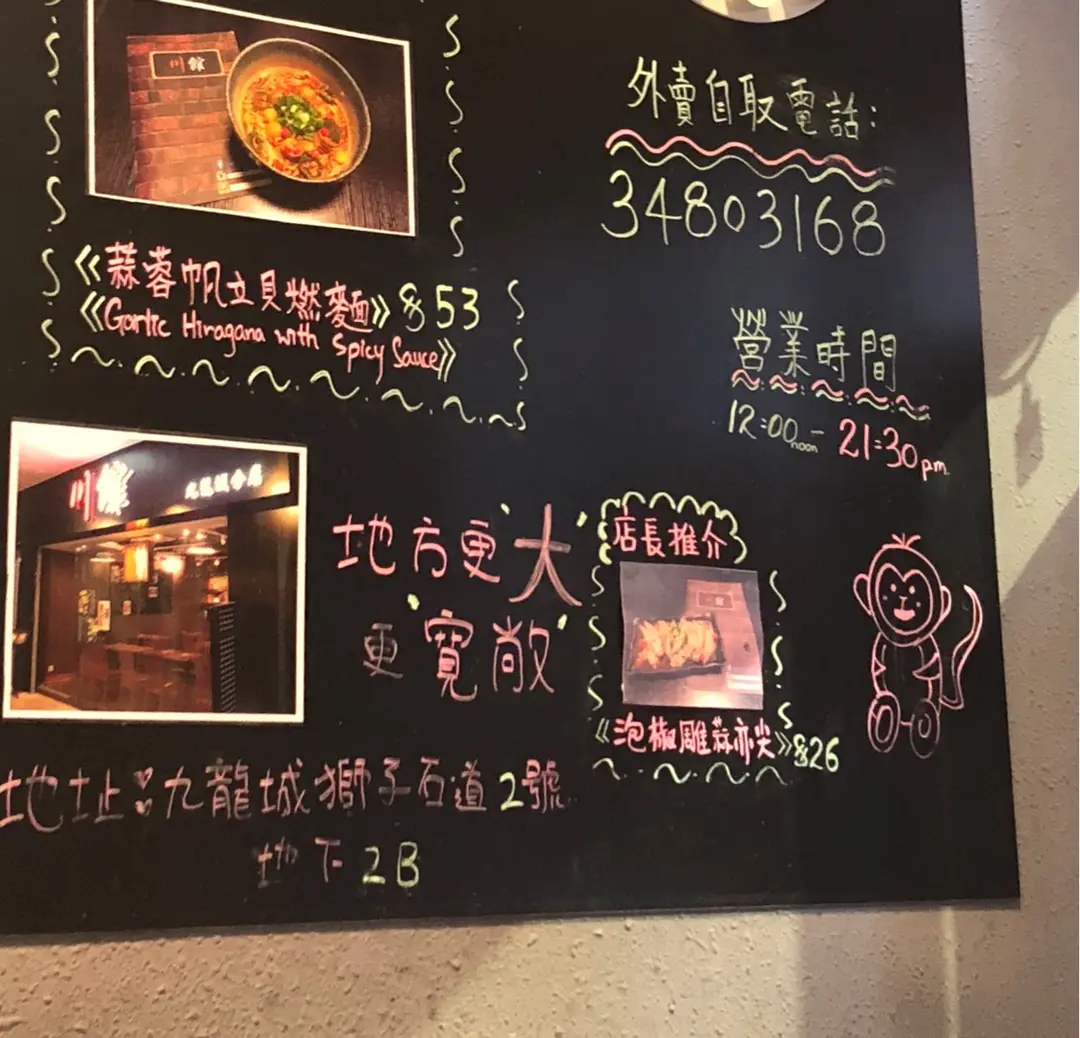 川館
外賣自取電話:
34803168
《蒜蓉帆立貝燃麵》$53
《Garlic Hiragana with Spicy Sauce》
營業時間
12:00noon-21:30pm
川館
九龍城分店
地方更"大"
更"寬敞"
店長推介
《泡椒雕蒜亦尖》$26
地址:九龍城獅子石道2號
地下2B